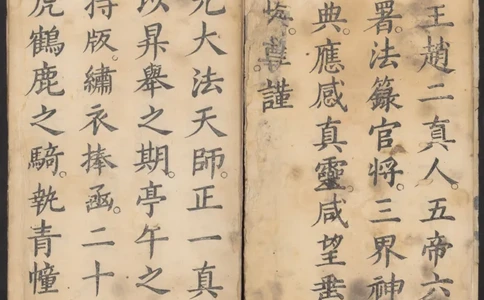 王趙二真人。五帝六
署。法籙官將。三界神
典應感真靈。咸望垂
尊。謹
元大法天師。正一真
以昇舉之期。亭午之
持版。繡衣捧凾。二十
虎鶴鹿之騎。執青幢